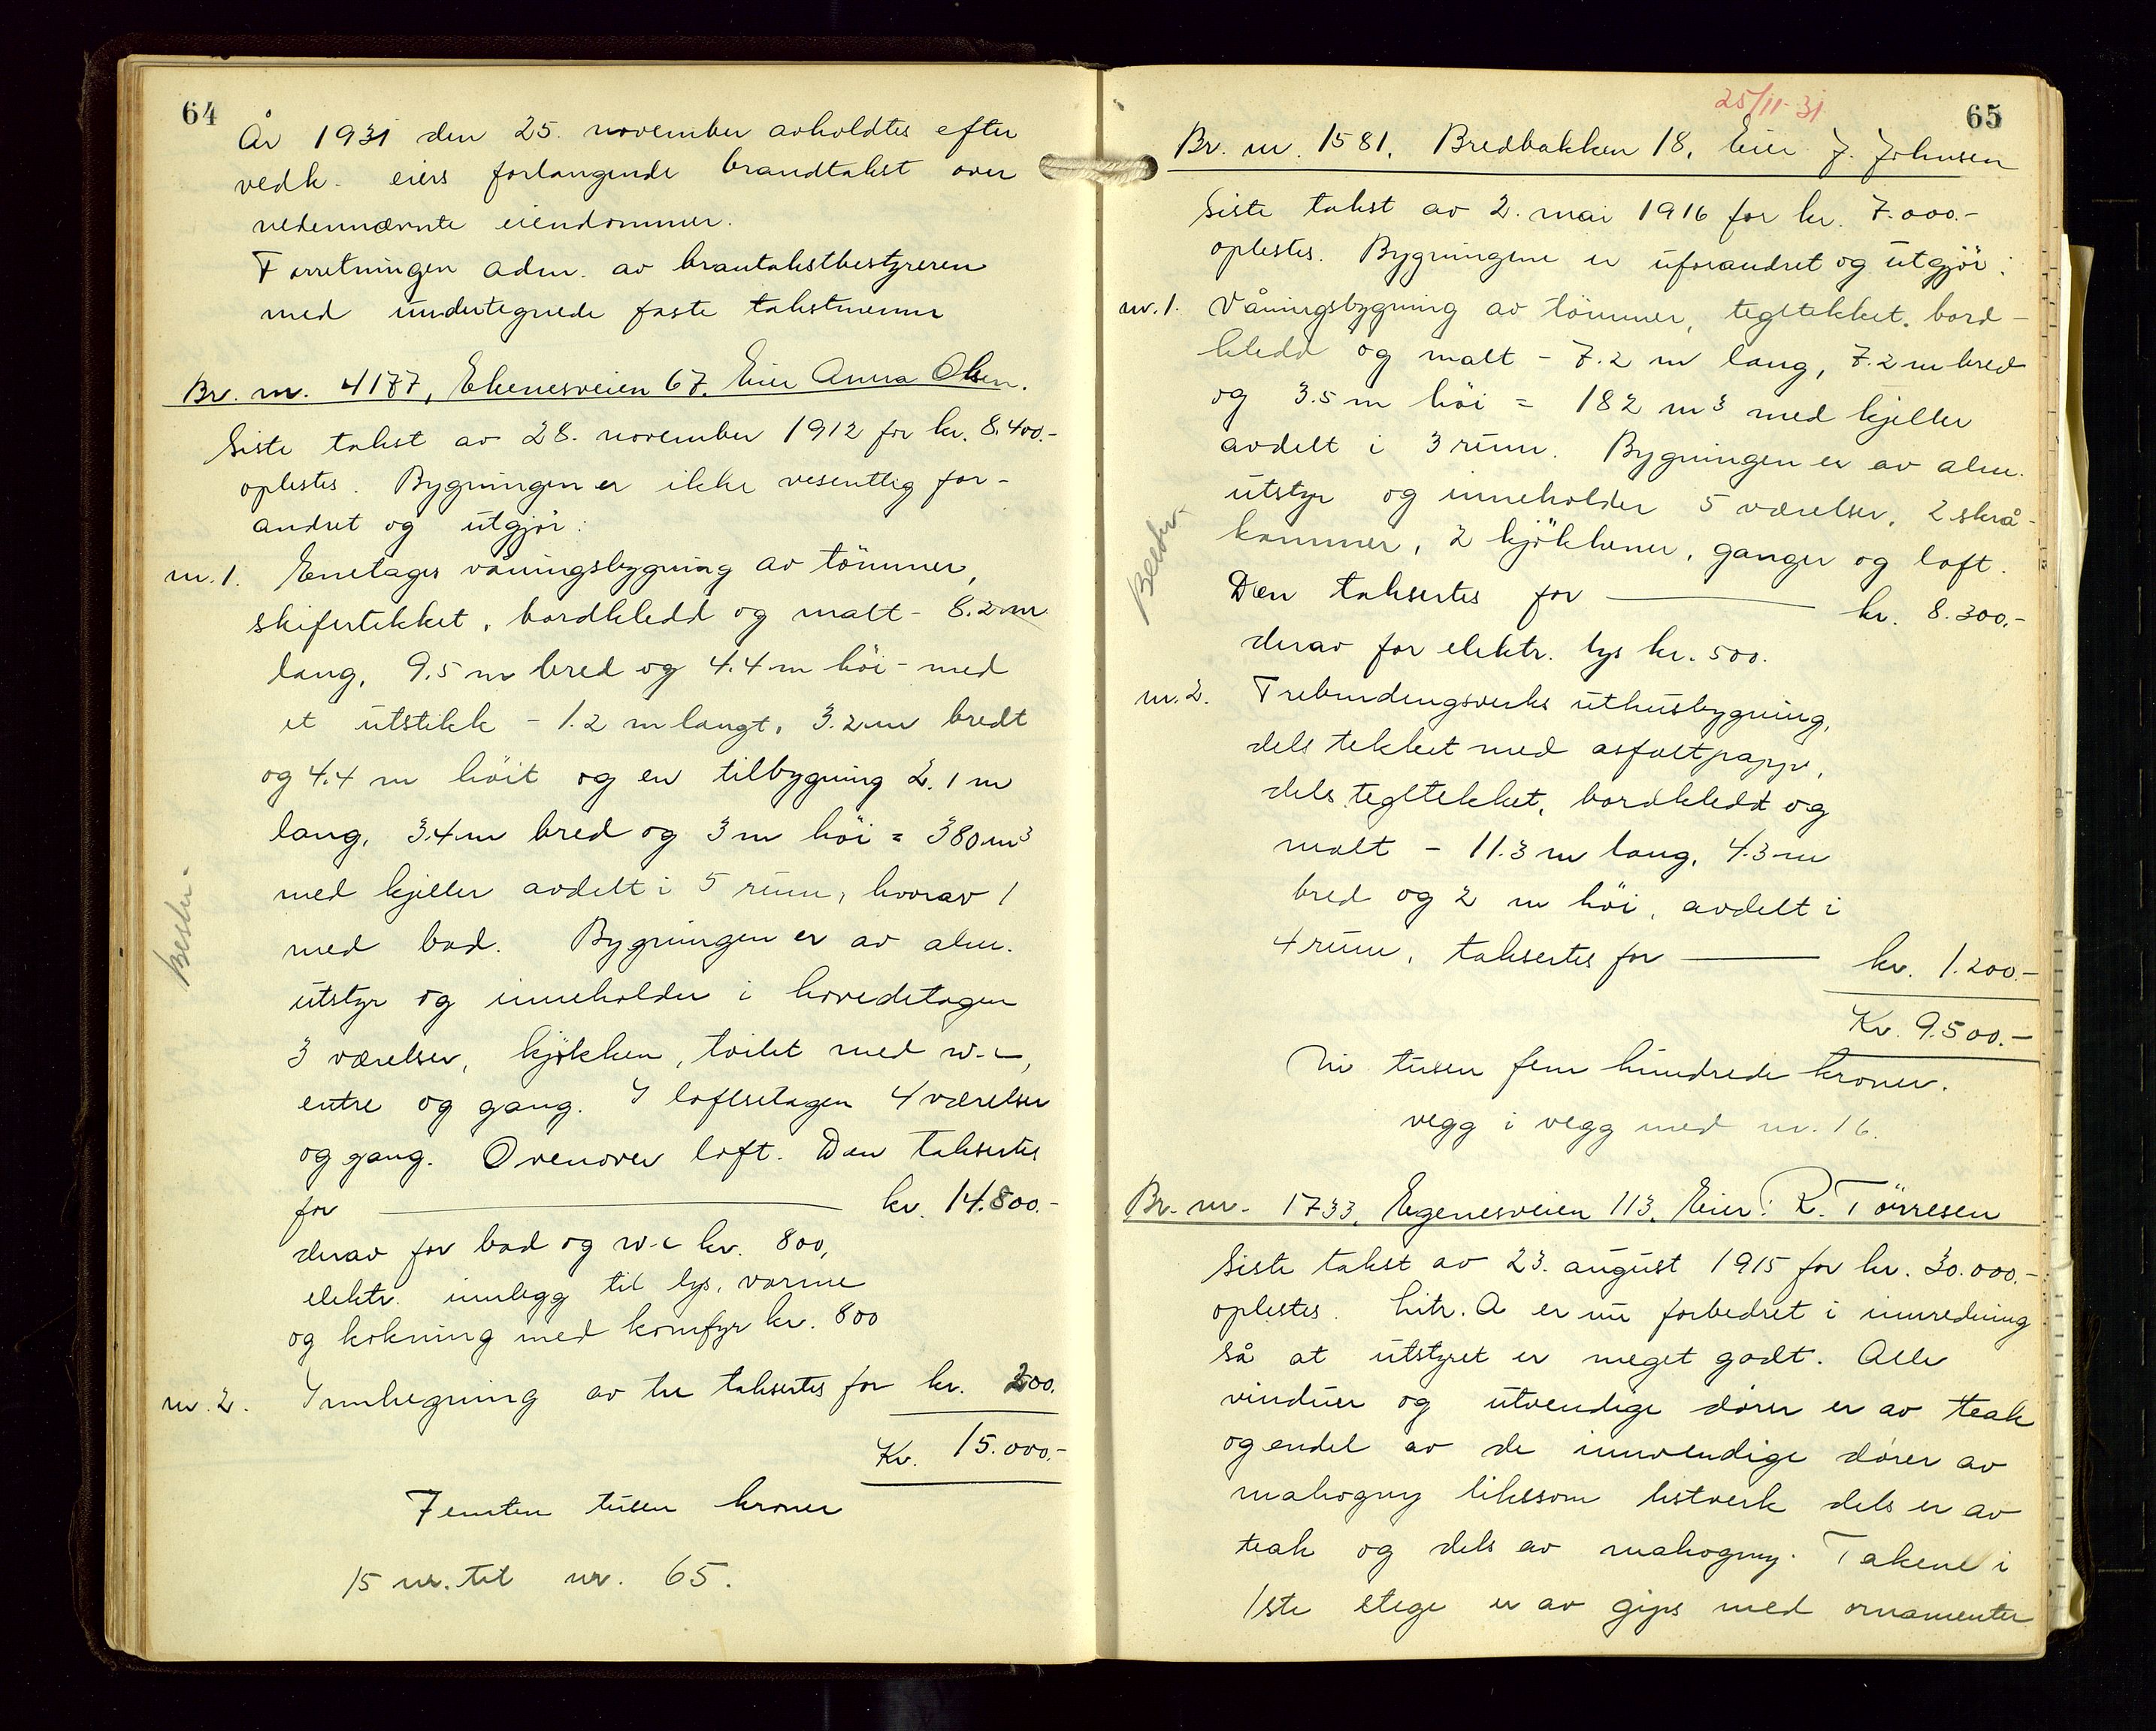 64
År 1931 den 25. november avholdtes efter
vedk. eiers forlangende brandtakst over
nedennævnte eiendommer.
Forretningen adm. av brantakstbestyreren
med undertegnede faste takstmenn
Br. nr. 4177, Ekenesveien 67. Eier Anna Olsen.
Siste takst av 28. november 1912 for kr. 8.400.-
oplestes. Bygningen er ikke vesentlig for-
andret og utgjør:
nr. 1. Enetages våningsbygning av tömmer,
skifertekket, bordkledd og malt - 8.2 m
lang, 9.5 m bred og 4.4 m höi - med
et utstikk - 1.2 m langt, 3.2 m bredt
og 4.4 m höit og en tilbygning 2.1 m
lang, 3.4 m bred og 3 m höi = 380 m³
med kjeller avdelt i 5 rum, hvorav 1
med bad. Bygningen er av alm.
utstyr og inneholder i hovedetagen
3 værelser, kjøkken, toilet med w.c,
entre og gang. I loftsetagen 4 værelser
og gang. Ovenover loft. Den taksertes
for kr. 14.800.-
derav for bad og w.c kr. 800,
elektr. innlegg til lys, varme
og kokning med komfyr kr. 800
nr. 2. Innhegning av tre taksertes for kr. 200.
Kr. 15.000.-
Femten tusen kroner
15 nr. til nr. 65.
25/11-31
65
Br. nr. 1581. Bredbakken 18. Eier J. Johnsen
Siste takst av 2. mai 1916 for kr. 7.000.-
oplestes. Bygningene er uforandret og utgjör:
nr. 1. Våningsbygning av tömmer, tegltekket, bord-
kledd og malt - 7.2 m lang, 7.2 m bred
og 3.5 m höi = 182 m³ med kjeller
avdelt i 3 rum. Bygningen er av alm.
utstyr og inneholder 5 værelser, 2 skrå-
kammer, 2 kjökkener, ganger og loft.
Den taksertes for kr. 8.300.-
derav for elektr. lys kr. 500.
nr. 2. Trebindingsverks uthusbygning,
dels tekket med asfaltpapp,
dels tegltekket, bordkledd og
malt - 11.3 m lang, 4.3 m
bred og 2 m höi, avdelt i
4 rum, taksertes for kr. 1.200.-
Kr. 9.500.-
Ni tusen fem hundrede kroner.
vegg i vegg med nr. 16.
Br. nr. 1733. Egenesveien 113. Eier: R. Törresen
Siste takst av 23. august 1915 for kr. 30.000.-
oplestes. Litr. A er nu forbedret i innredning
så at utstyret er meget godt. Alle
vinduer og utvendige dører er av teak
og endel av de innvendige dører av
mahogny likesom listverk dels er av
teak og dels av mahogny. Takene i
1ste etage er av gips med ornamenter